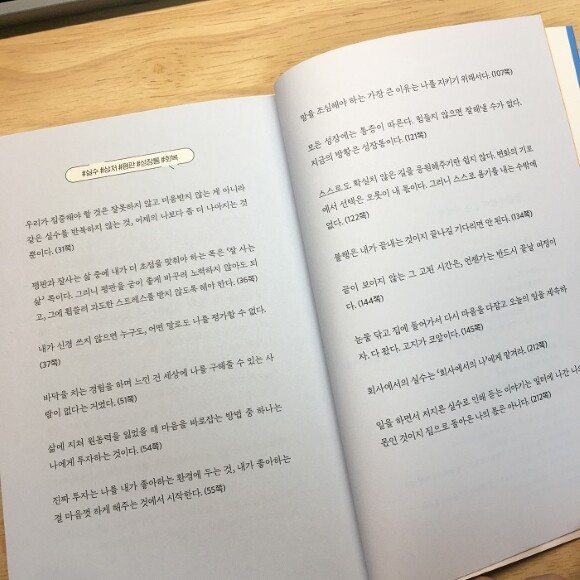 #실수 #상처 #평판 #성장통 #회복
우리가 집중해야 할 것은 잘못하지 않고 미움받지 않는 게 아니라
같은 실수를 반복하지 않는 것, 어제의 나보다 좀 더 나아지는 것
뿐이다. (31쪽)
평판과 잘사는 삶 중에 내가 더 초점을 맞춰야 하는 쪽은 '잘 사는
삶' 쪽이다. 그러니 평판을 굳이 좋게 바꾸려 노력하지 않아도 되
고, 그에 휩쓸려 과도한 스트레스를 받지 않도록 해야 한다. (36쪽)
내가 신경 쓰지 않으면 누구도, 어떤 말로도 나를 평가할 수 없다.
(37쪽)
바닥을 치는 경험을 하며 느낀 건 세상에 나를 구해줄 수 있는 사
람이 없다는 거였다. (51쪽)
삶에 지쳐 원동력을 잃었을 때 마음을 바로잡는 방법 중 하나는
나에게 투자하는 것이다. (54쪽)
진짜 투자는 나를 내가 좋아하는 환경에 두는 것, 내가 좋아하는
걸 마음껏 하게 해주는 것에서 시작한다. (55쪽)
말을 조심해야 하는 가장 큰 이유는 나를 지키기 위해서다. (107쪽)
모든 성장에는 통증이 따른다. 힘들지 않으면 잘해낼 수가 없다.
지금의 방황은 성장통이다. (121쪽)
스스로도 확실치 않은 길을 응원해주기란 쉽지 않다. 변화의 기로
에서 선택은 오롯이 내 몫이다. 그러니 스스로 용기를 내는 수밖에
없다. (122쪽)
불행은 내가 끝내는 것이지 끝나길 기다리면 안 된다. (134쪽)
끝이 보이지 않는 그 고된 시간은, 언젠가는 반드시 끝날 여정이
다. (144쪽)
눈물 닦고 집에 들어가서 다시 마음을 다잡고 오늘의 일을 계속하
자. 다 왔다. 고지가 코앞이다. (145쪽)
회사에서의 실수는 '회사에서의 나'에게 맡겨라. (212쪽)
일을 하면서 저지른 실수로 인해 듣는 이야기는 일터에 나간 나의
몫인 것이지 집으로 돌아온 나의 몫은 아니다. (212쪽)